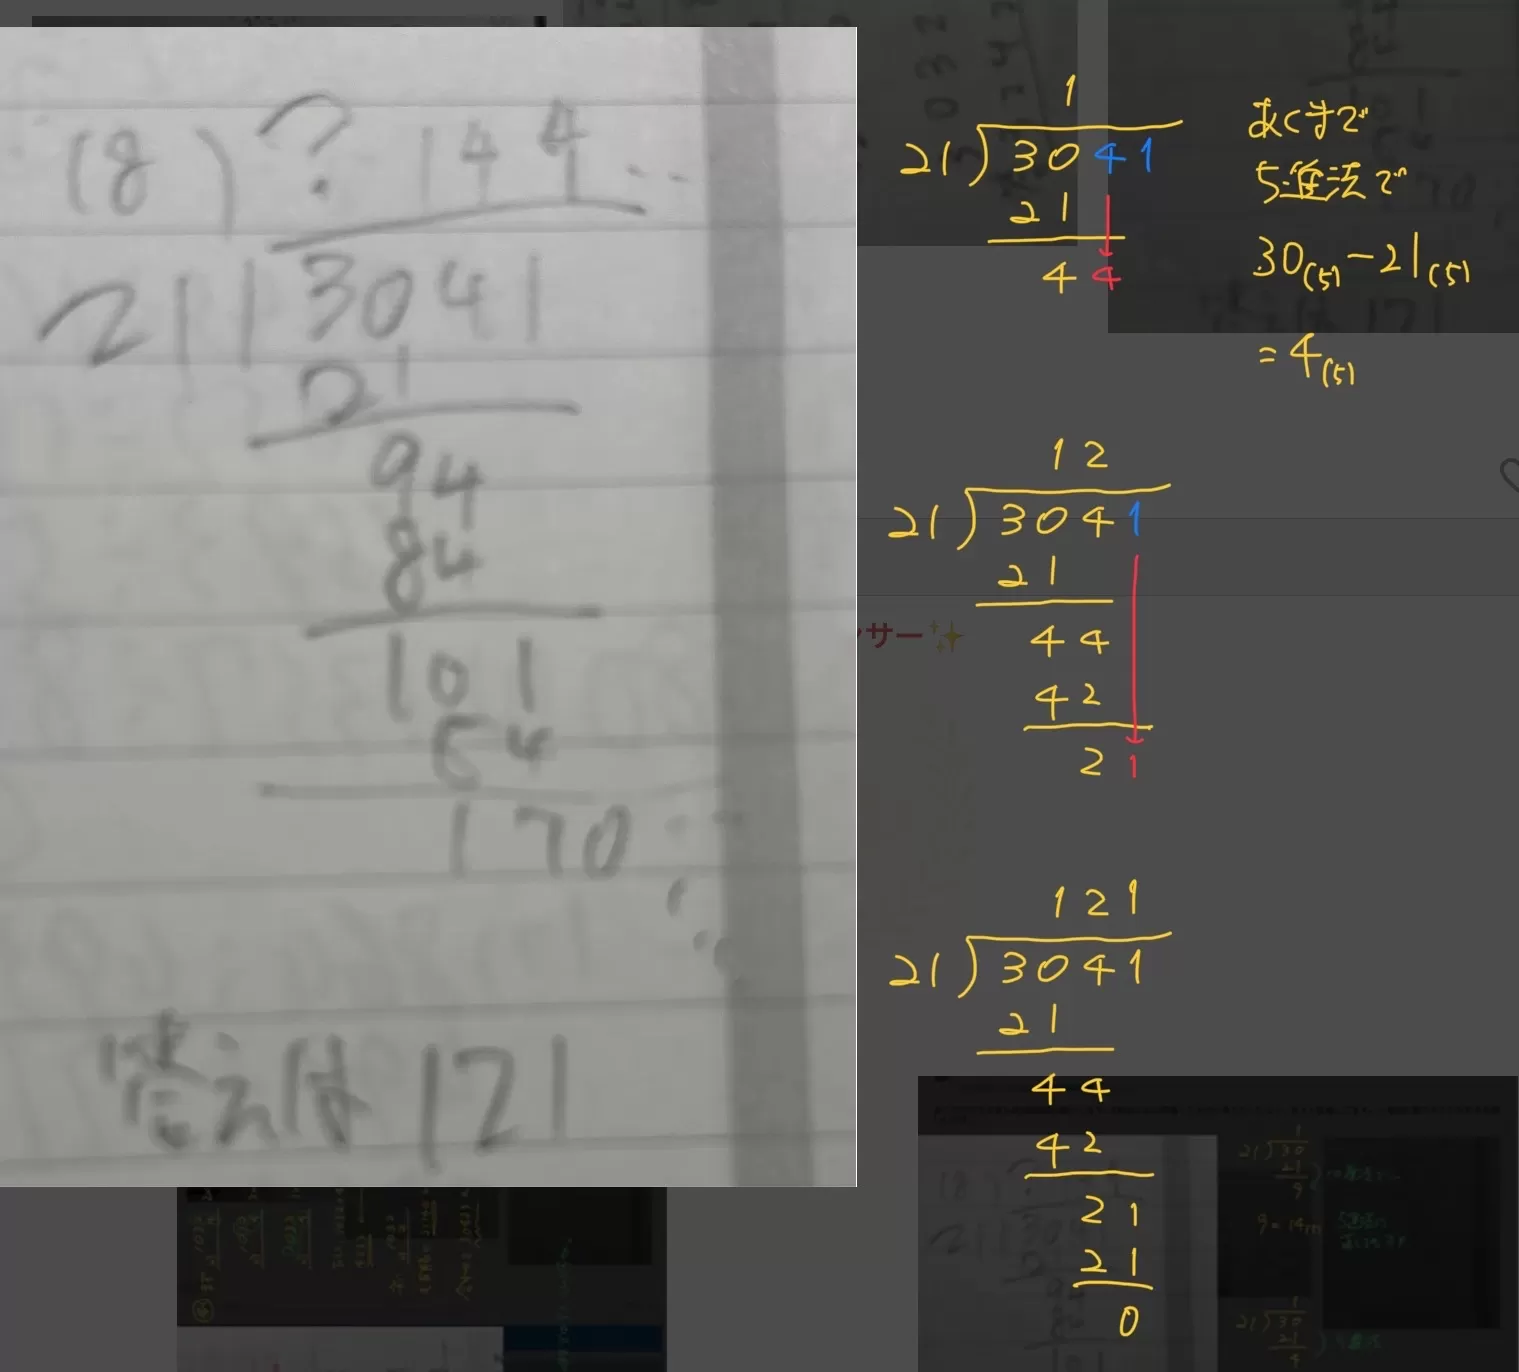 (8) ? 144...
21 | 3041
21
94
84
101
84
170...
答えは121
1
21 ) 3041
21
44
あくまで
5進法で
30(5)-21(5)
=4(5)
12
21 ) 3041
21
44
42
21
ンサー✨
121
21 ) 3041
21
44
42
21
21
0